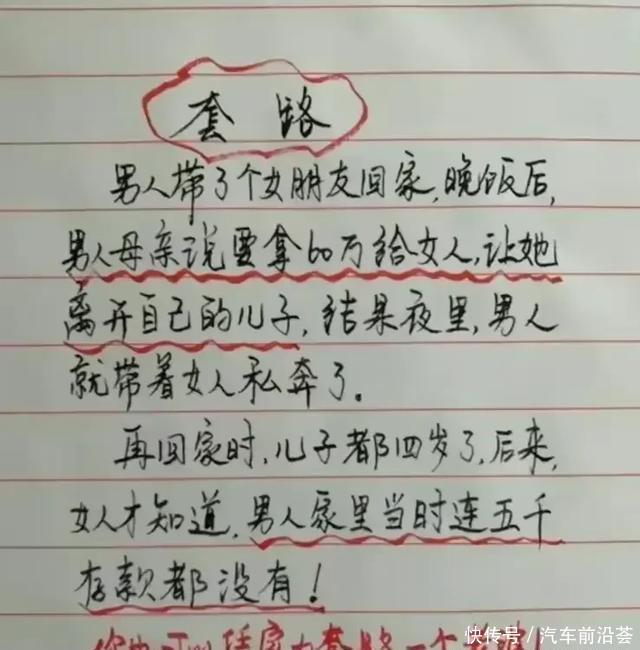 套路
男人带了个女朋友回家,晚饭后,
男人母亲说要拿60万给女人,让她
离开自己的儿子,结果夜里,男人
就带着女人私奔了。
再回家时,儿子都四岁了,后来,
女人才知道,男人家里当时连五千
存款都没有!
快传号/汽车前沿荟